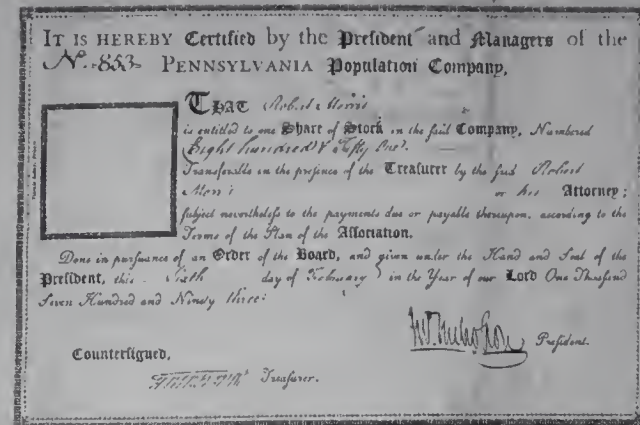 IT IS HEREBY Certified by the President and Managers of the
No. 853 PENNSYLVANIA Population Company,
THAT Robert Morris
is entitled to one Share of Stock in the said Company, Numbered
Eight hundred & Fifty One
Transferable in the presence of the Treasurer by the said Robert
Morris or his Attorney;
subject nevertheless to the payments due or payable thereupon, according to the
Terms of the Plan of the Association.
Done in pursuance of an Order of the Board, and given under the Hand and Seal of the
President, this Sixth day of February in the Year of our Lord One Thousand
Seven Hundred and Ninety three.
President.
Countersigned,
Treasurer.